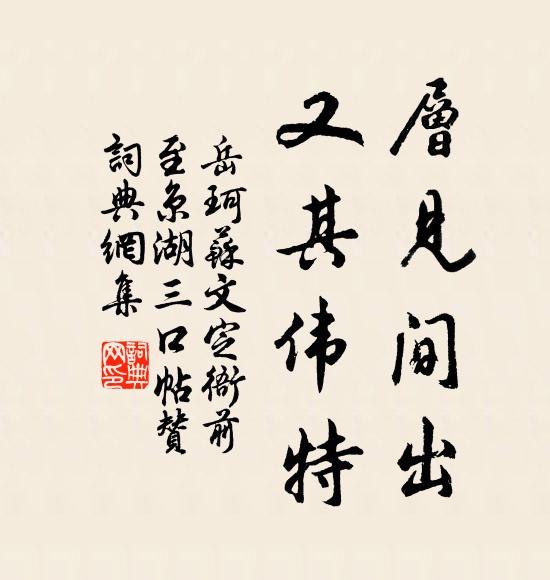 層見間出
又其伟特
岳珂蘇文定衙前
至京湖三口帖贊
詞典網集
詞典
网印